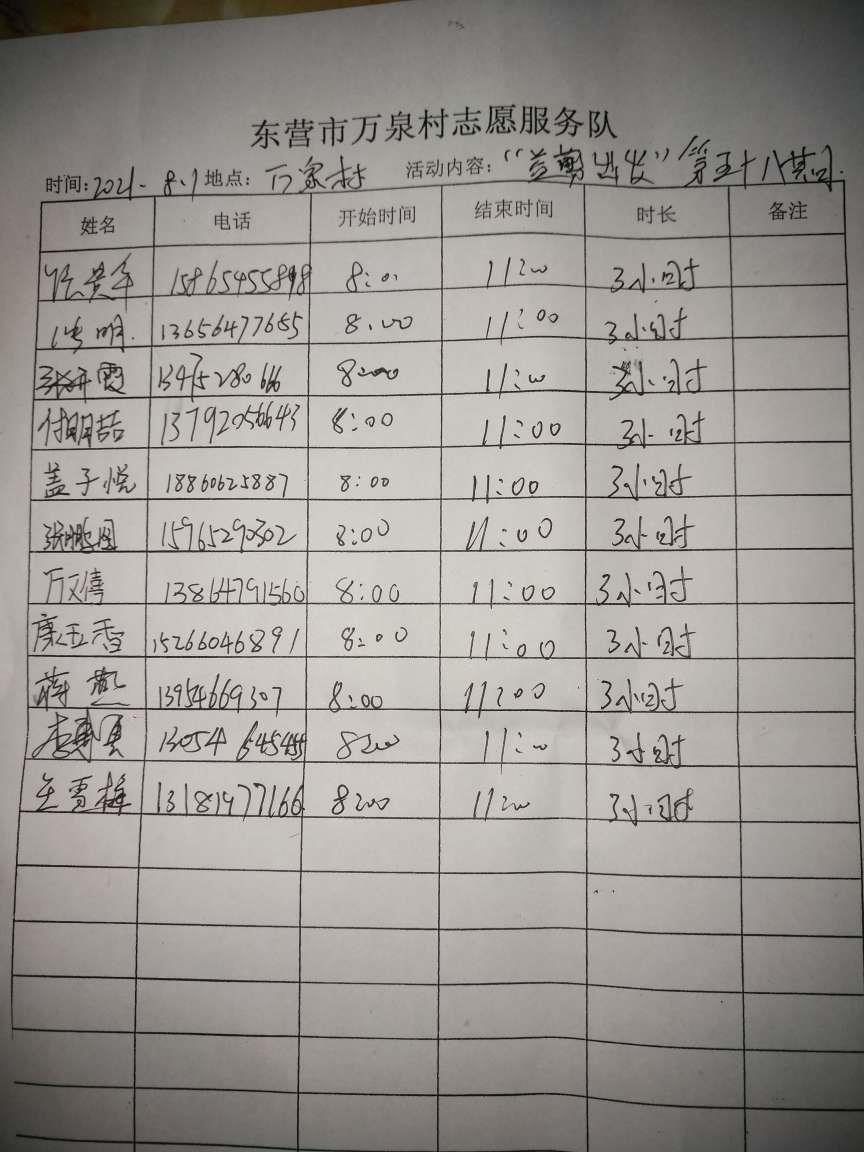 东营市万泉村志愿服务队
时间:2021.8.1 地点: 万泉村 活动内容: “益剪出发”第五十八期
姓名 电话 开始时间 结束时间 时长 备注
15865455898 8:00 11:00 3小时
明 13656477655 8:00 11:00 3小时
霞 13475280666 8:00 11:00 3小时
付明喆 13792056643 8:00 11:00 3小时
盖子悦 18860625887 8:00 11:00 3小时
张鹏图 15965290302 8:00 11:00 3小时
万文僖 13864791560 8:00 11:00 3小时
康玉香 15266046891 8:00 11:00 3小时
蒋燕 13954669307 8:00 11:00 3小时
13054645455 8:00 11:00 3小时
王雪梅 13181977166 8:00 11:00 3小时